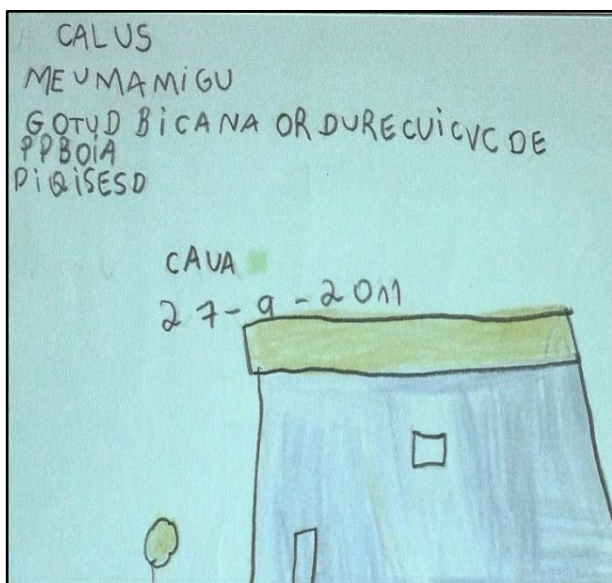 CALUS
MEUMAMIGU
GOTUD BICANA ORDURECUICUCDE
PPBOIA
PIQISESD
CAUA
27-9-2011